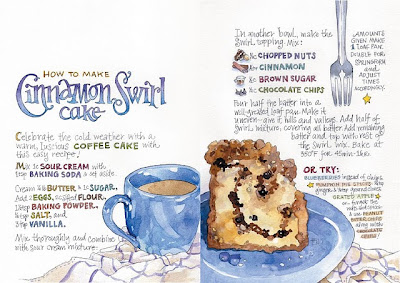 HOW TO MAKE
Cinnamon Swirl
cake
Celebrate the cold weather with a
warm, luscious COFFEE CAKE with
this easy recipe!
Mix SOUR CREAM with
BAKING SODA & set aside.
Cream BUTTER & SUGAR.
Add EGGS, FLOUR,
BAKING POWDER,
SALT, and
VANILLA.
Mix thoroughly and combine
with sour cream mixture.
In another bowl, make the
Swirl topping. Mix:
CHOPPED NUTS
CINNAMON
BROWN SUGAR
CHOCOLATE CHIPS
Pour half the batter into a
well-greased loaf pan. Make it
uneven-give it hills and valleys. Add half of
swirl mixture, covering all batter. Add remaining
batter and top with rest of
the swirl mix. Bake at
350°F for
AMOUNTS
GIVEN MAKE
LOAF PAN.
DOUBLE FOR
SPRINGFORM
and
ADJUST
TIMES
ACCORDINGLY.
OR TRY:
BLUEBERRIES instead of chips
PUMPKIN PIE SPICES
GRATED APPLE
PEANUT
BUTTER CHIPS
along with
CHOCOLATE
CHIPS!